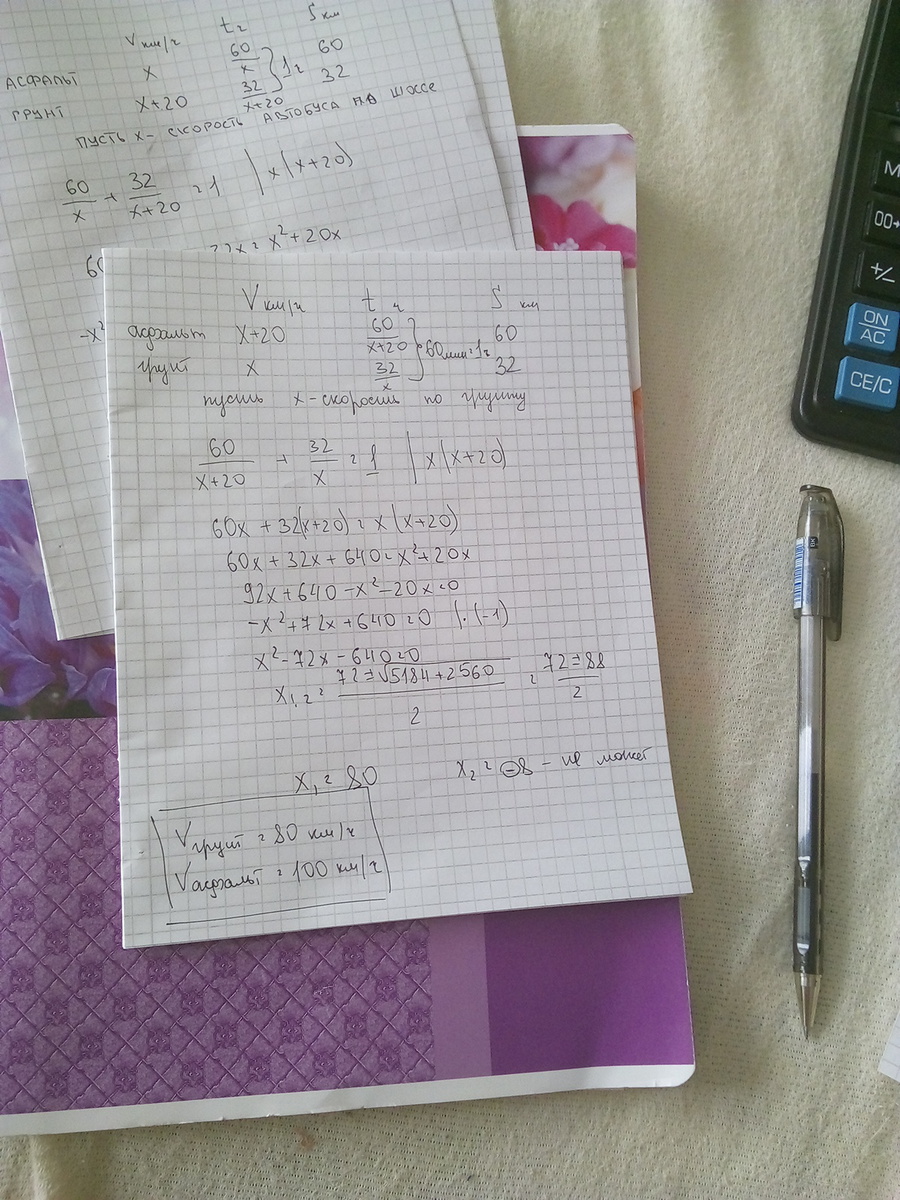 V км/ч t ч S км
АСФАЛЬТ x 60/x } 1ч 60
ГРУНТ x+20 32/x+20 32
ПУСТЬ x - СКОРОСТЬ АВТОБУСА ПО ШОССЕ
60/x + 32/x+20 = 1 | x(x+20)
60 32x = x²+20x
-x²
V км/ч t ч S км
асфальт x+20 60/x+20 } 60мин=1ч 60
грунт x 32/x 32
пусть x-скорость по грунту
60/x+20 + 32/x = 1 | x(x+20)
60x + 32(x+20) = x(x+20)
60x + 32x + 640 = x²+20x
92x+640-x²-20x=0
-x²+72x+640=0 |·(-1)
x²-72x-640=0
x1,2 = 72±√5184+2560/2 = 72±88/2
x1 = 80 x2 = -8 - не может
Vгрунт = 80 км/ч
Vасфальт = 100 км/ч
M
00→
+/-
ON/AC
CE/C